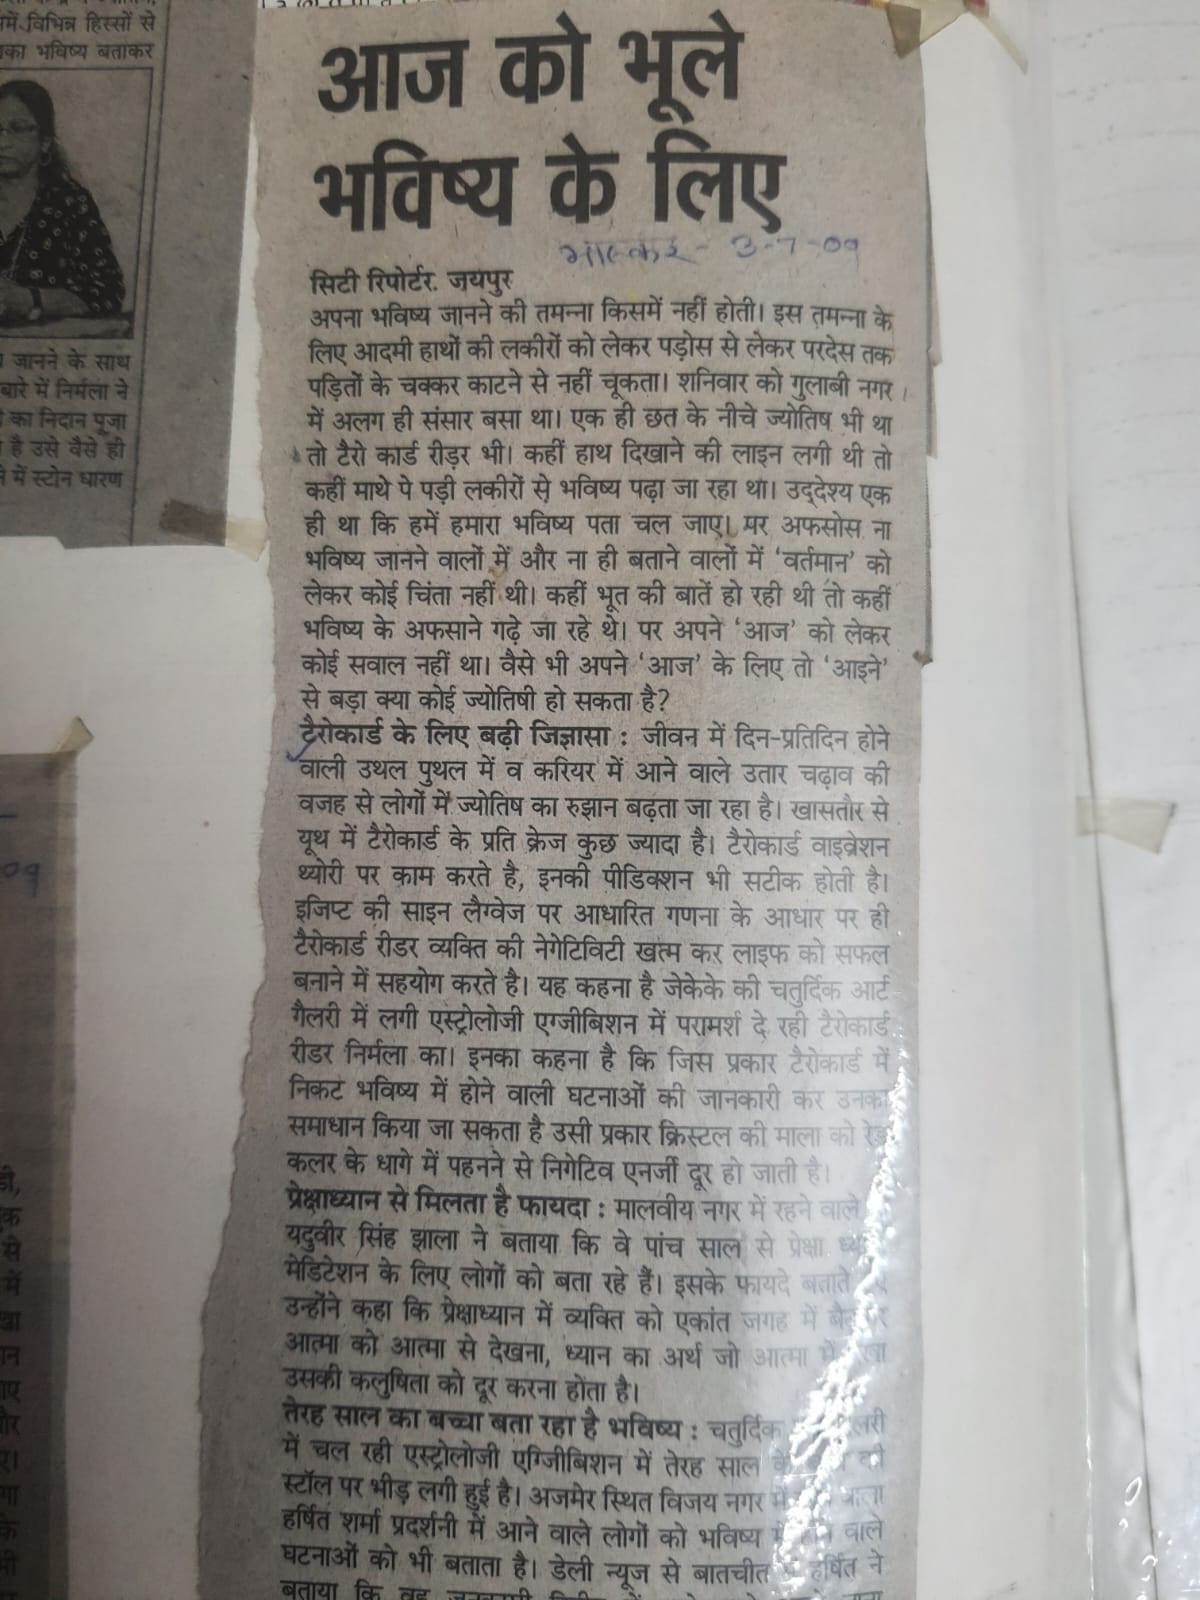 में विभिन्न हिस्सों से
का भविष्य बताकर
जानने के साथ
बारे में निर्मला ने
का निदान पूजा
है उसे वैसे ही
में स्टोन धारण
आज को भूले
भविष्य के लिए
भास्कर - 3-7-09
सिटी रिपोर्टर. जयपुर
अपना भविष्य जानने की तमन्ना किसमें नहीं होती। इस तमन्ना के
लिए आदमी हाथों की लकीरों को लेकर पड़ोस से लेकर परदेस तक
पड़ितों के चक्कर काटने से नहीं चूकता। शनिवार को गुलाबी नगर
में अलग ही संसार बसा था। एक ही छत के नीचे ज्योतिष भी था
तो टैरो कार्ड रीड़र भी। कहीं हाथ दिखाने की लाइन लगी थी तो
कहीं माथे पे पड़ी लकीरों से भविष्य पढ़ा जा रहा था। उद्देश्य एक
ही था कि हमें हमारा भविष्य पता चल जाए। पर अफसोस ना
भविष्य जानने वालों में और ना ही बताने वालों में ‘वर्तमान’ को
लेकर कोई चिंता नहीं थी। कहीं भूत की बातें हो रही थी तो कहीं
भविष्य के अफसाने गढ़े जा रहे थे। पर अपने ‘आज’ को लेकर
कोई सवाल नहीं था। वैसे भी अपने ‘आज’ के लिए तो ‘आइने’
से बड़ा क्या कोई ज्योतिषी हो सकता है?
टैरोकार्ड के लिए बढ़ी जिज्ञासा : जीवन में दिन-प्रतिदिन होने
वाली उथल पुथल में व करियर में आने वाले उतार चढ़ाव की
वजह से लोगों में ज्योतिष का रुझान बढ़ता जा रहा है। खासतौर से
यूथ में टैरोकार्ड के प्रति क्रेज कुछ ज्यादा है। टैरोकार्ड वाइब्रेशन
थ्योरी पर काम करते है, इनकी पीडिक्शन भी सटीक होती है।
इजिप्ट की साइन लैग्वेज पर आधारित गणना के आधार पर ही
टैरोकार्ड रीडर व्यक्ति की नेगेटिविटी खत्म कर लाइफ को सफल
बनाने में सहयोग करते है। यह कहना है जेकेके की चतुर्दिक आर्ट
गैलरी में लगी एस्ट्रोलोजी एग्जीबिशन में परामर्श दे रही टैरोकार्ड
रीडर निर्मला का। इनका कहना है कि जिस प्रकार टैरोकार्ड में
निकट भविष्य में होने वाली घटनाओं की जानकारी कर उनका
समाधान किया जा सकता है उसी प्रकार क्रिस्टल की माला को रेड
कलर के धागे में पहनने से निगेटिव एनर्जी दूर हो जाती है।
प्रेक्षाध्यान से मिलता है फायदा : मालवीय नगर में रहने वाले
यदुवीर सिंह झाला ने बताया कि वे पांच साल से प्रेक्षा
मेडिटेशन के लिए लोगों को बता रहे हैं। इसके फायदे बताते
उन्होंने कहा कि प्रेक्षाध्यान में व्यक्ति को एकांत जगह में
आत्मा को आत्मा से देखना, ध्यान का अर्थ जो आत्मा में
उसकी कलुषिता को दूर करना होता है।
तेरह साल का बच्चा बता रहा है भविष्य : चतुर्दिक
में चल रही एस्ट्रोलोजी एग्जिीबिशन में तेरह साल के की
स्टॉल पर भीड़ लगी हुई है। अजमेर स्थित विजय नगर में
हर्षित शर्मा प्रदर्शनी में आने वाले लोगों को भविष्य में होने वाले
घटनाओं को भी बताता है। डेली न्यूज से बातचीत हर्षित ने
बताया कि वह